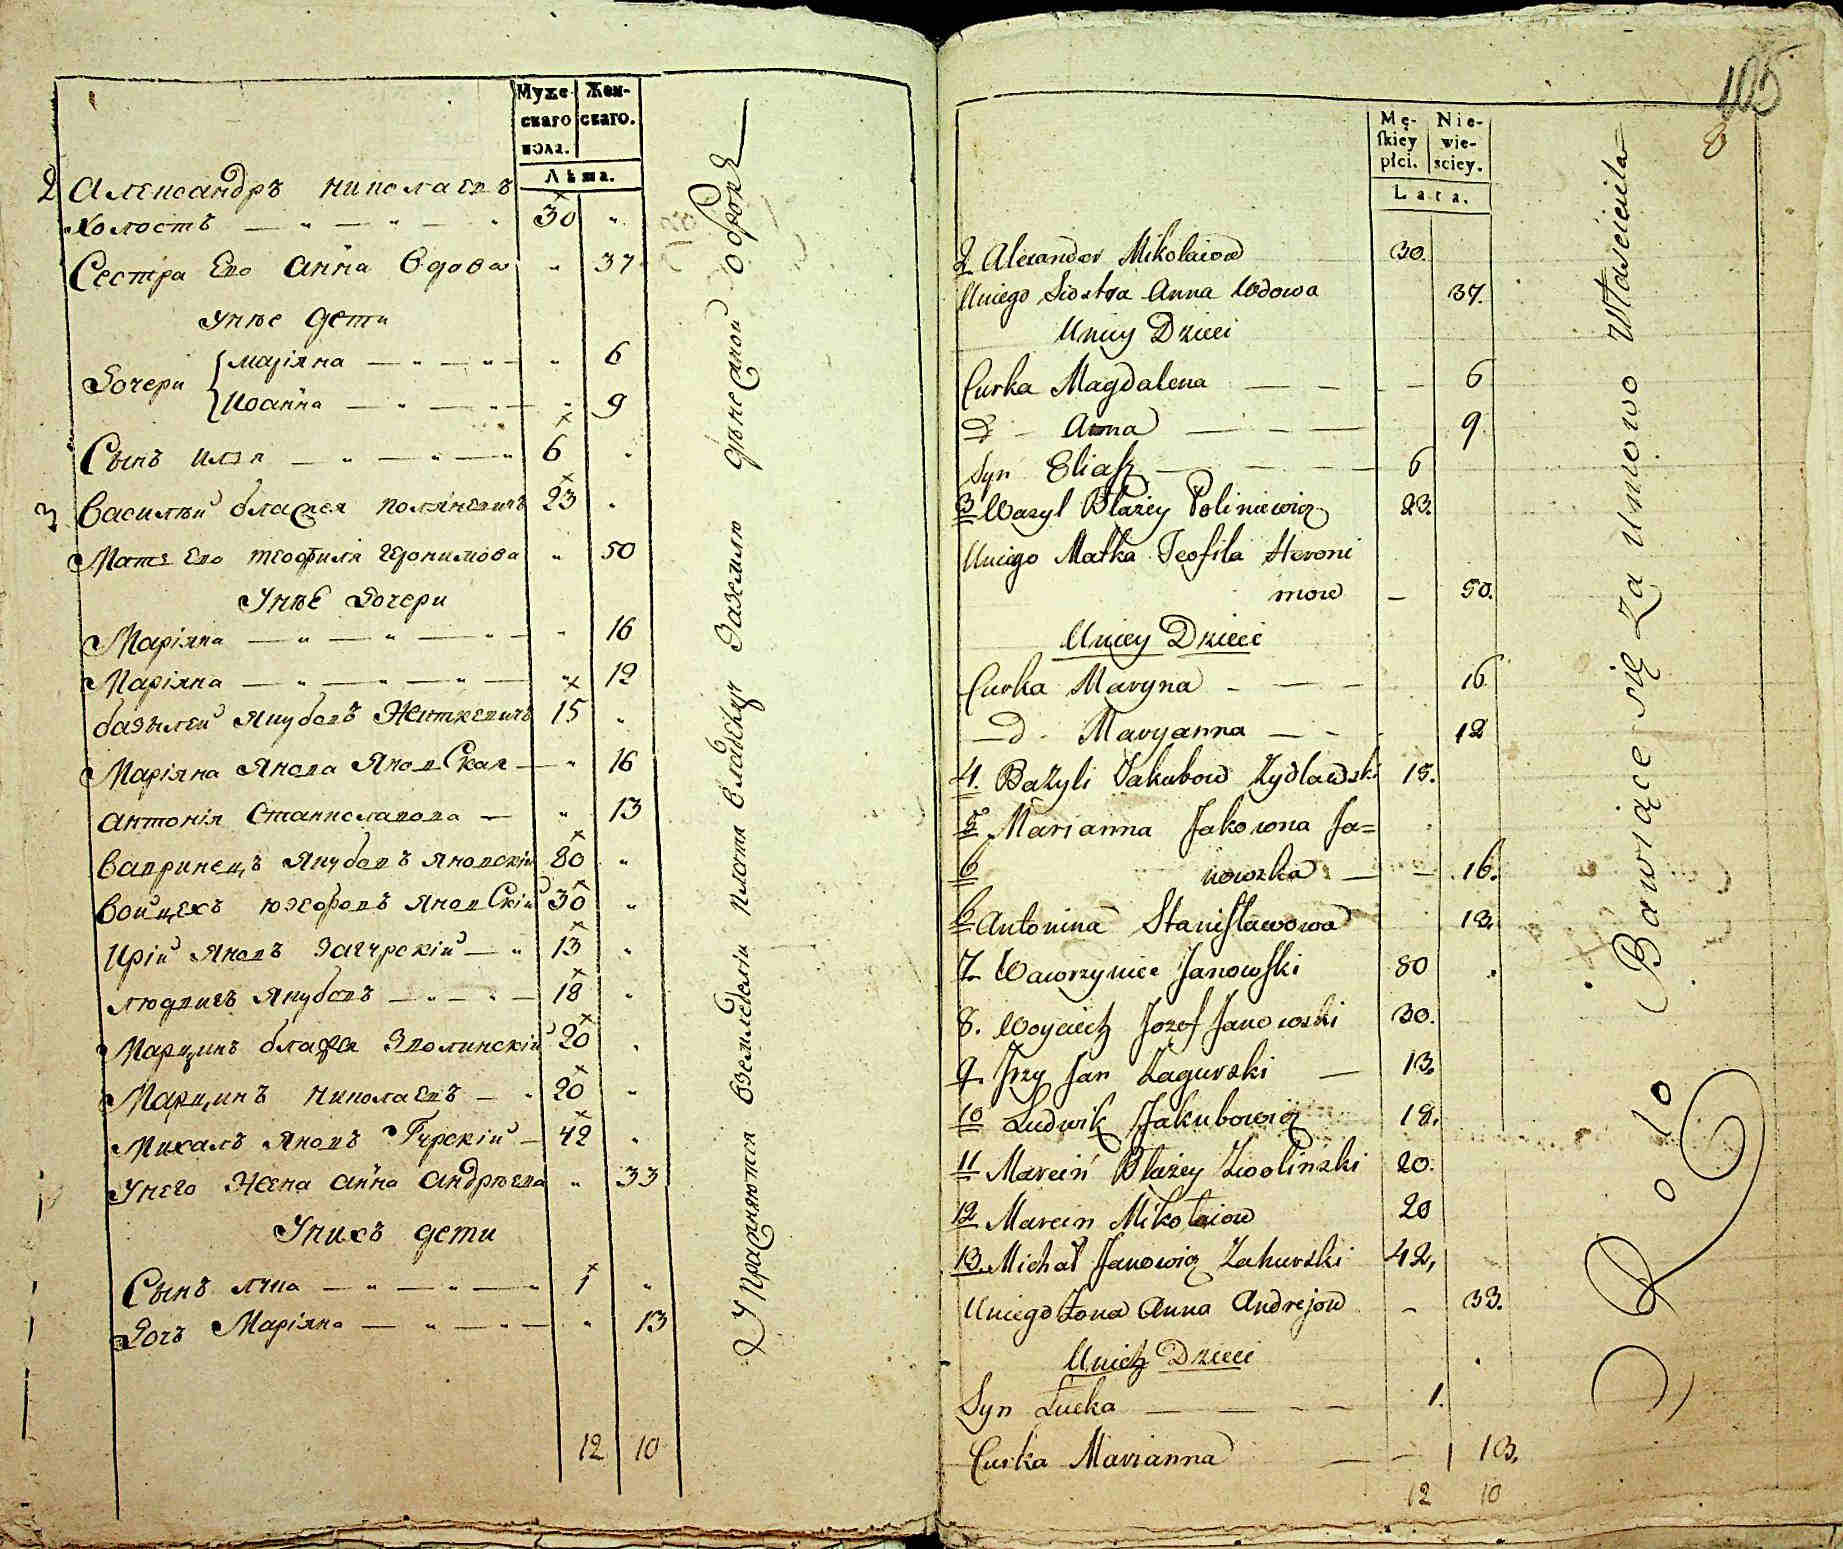 Муже-
скаго
пола.
Жен-
скаго.
Лѣта.
2 Александръ Николаевъ
холостъ — „ — „ — „ 30 „
Сестра Его Анна вдова „ 37
Унѣе дети
Дочери
Маріяна — „ — „ — „ 6
Иоанна — „ — „ — „ 9
Сынъ Илія — „ — „ — „ 6 „
3 Василѣй блажея Полиневичъ 23 „
Мать Его Теофиля Геронимова „ 50
Унѣе Дочери
Маріяна — „ — „ — „ — „ 16
Маріяна — „ — „ — „ — „ 12
базылей Якубовъ 15 „
Маріяна Янова Яновская — „ 16
Антонія Станиславова — „ 13
Вавринецъ Якубовъ Яновскій 80 „
Войцехъ Юзефовъ Яновскій 30 „
Ирій Яновъ Загурскій — „ 13 „
Людвигъ Якубовъ — „ — „ — 18 „
Марцинъ блажея Зволинскій 20 „
Марцинъ Николаевъ — „ 20 „
Михалъ Яновъ Гурскій — 42 „
Унего Жена Анна Андрѣева „ 33
Унихъ дети
Сынъ Лука — „ — „ — „ 1 „
Дочъ Маріяна — „ — „ — „ 13
12 10
Упражняются Вземледѣліи плотя владѣльцу Заземлю денежной оброкъ
105
8
Mę-
skiey
płci.
Nie-
wie-
sciey.
Lata.
2 Alexander Mikolaiow 30.
Uniego Siostra Anna Wdowa 37.
Uniey Dzieci
Curka Magdalena — — — — 6
D - Anna — — — 9
Syn Eliasz — — — — 6
3 Wasyl Błażey Poliniewicz 23.
Uniego Matka Teofila Heroni
mow — 50.
Uniey Dzieci
Curka Maryna — — — 16
— D - Maryanna — — - 12
4. Bazyli Jakubow Zydlawski 15.
5 Marianna Jakowna Ja=
6 nowska — — 16.
6 Antonina Stanisławowa 13.
7. Wawrzyniec Janowski 80
8. Woyciech Jozef Janowski 30.
9. Jrzy Jan Zagurski — 13.
10 Ludwik Jakubowicz 18.
11 Marcin Błażey Zwolinski 20.
12 Marcin Mikołaiow 20
13. Michał Janowicz Zahurski 42,
Uniego Zona Anna Andrejow - 33.
Unich Dzieci
Syn Łucka — — — — 1.
Curka Marianna — — — 13.
12 10
Rolo Bawiące się Za Umowo Właściciela